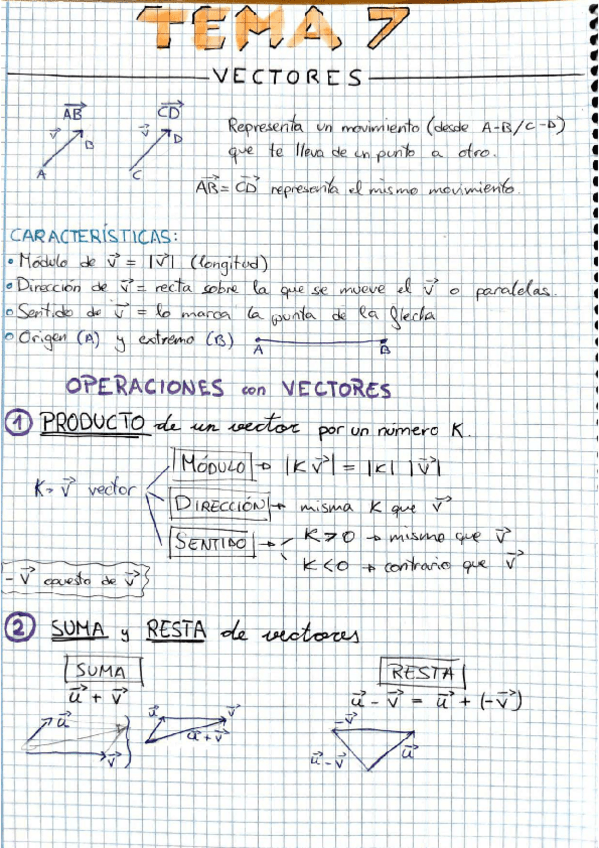 TEMA 7
VECTORES
AB→ CD→
v→ B v→ D
A C
Representa un movimiento (desde A-B/C-D)
que te lleva de un punto a otro.
AB→ = CD→ representa el mismo movimiento.
CARACTERÍSTICAS:
• Módulo de v→ = |v→| (longitud)
• Dirección de v→ = recta sobre la que se mueve el v→ o paralelas.
• Sentido de v→ = lo marca la punta de la flecha
• Origen (A) y extremo (B) A B
OPERACIONES con VECTORES
① PRODUCTO de un vector por un número K.
MÓDULO → |K v→| = |K| |v→|
K · v→ vector
DIRECCIÓN → misma K que v→
SENTIDO → K > 0 → mismo que v→
K < 0 → contrario que v→
- v→ opuesto de v→
② SUMA y RESTA de vectores
SUMA
u→ + v→
u→ v→
u→ v→ u→ + v→
RESTA
u→ - v→ = u→ + (-v→)
-v→
u→ - v→ u→